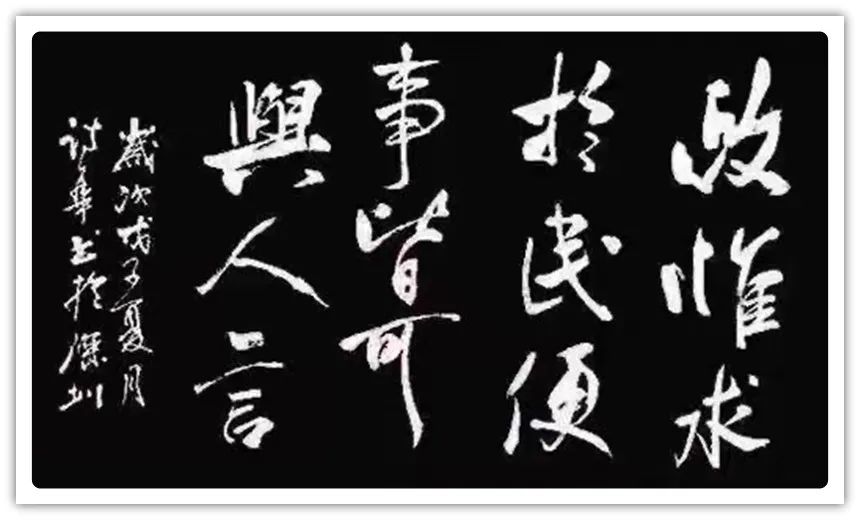 政惟求
於民便
事皆可
與人言
歲次戊子夏月
詩華书於深圳